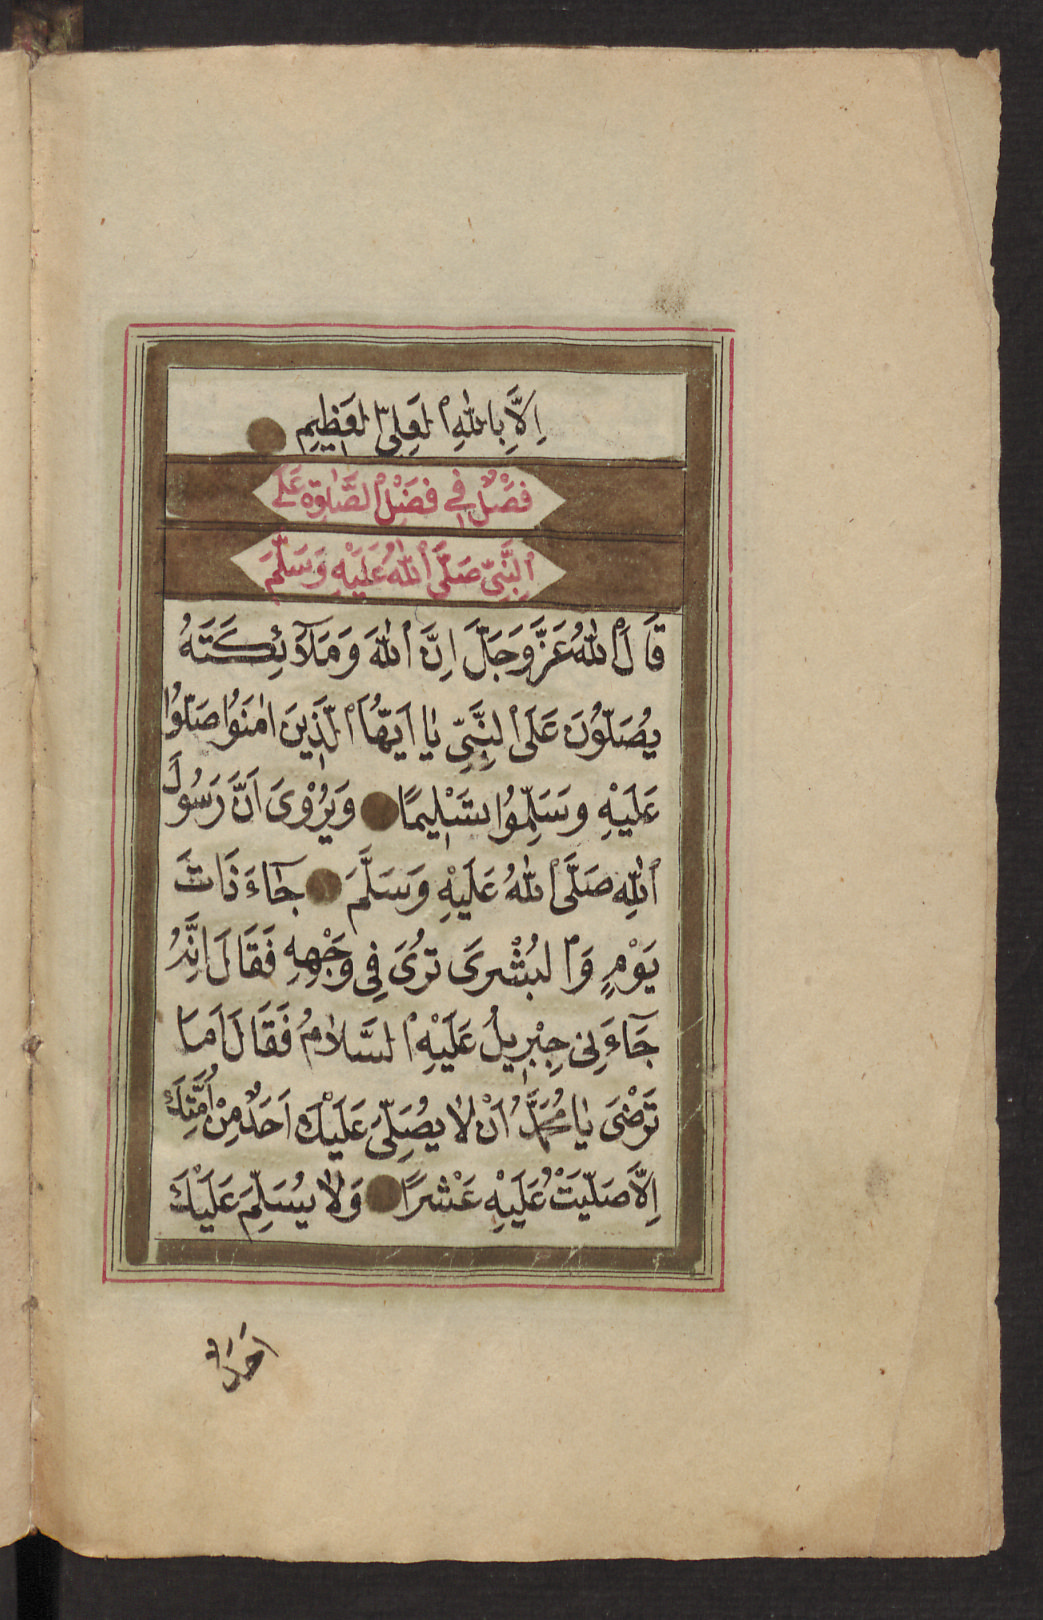 اِلَّا بِاللّٰهِ الْعَلِىِّ الْعَظِيمِ
فَصْلٌ فِي فَضْلِ الصَّلٰوةِ عَلَى
النَّبِيِّ صَلَّى اللّٰهُ عَلَيْهِ وَسَلَّمَ
قَالَ اللّٰهُ عَزَّ وَجَلَّ اِنَّ اللّٰهَ وَمَلَآئِكَتَهُ
يُصَلُّونَ عَلَى النَّبِيِّ يَا اَيُّهَا الَّذِينَ اٰمَنُوا صَلُّوا
عَلَيْهِ وَسَلِّمُوا تَسْلِيمًا وَيُرْوٰى اَنَّ رَسُولَ
اللّٰهِ صَلَّى اللّٰهُ عَلَيْهِ وَسَلَّمَ جَاءَ ذَاتَ
يَوْمٍ وَالْبُشْرٰى تُرٰى فِى وَجْهِهِ فَقَالَ اِنَّهُ
جَآءَنِى جِبْرِيلُ عَلَيْهِ السَّلَامُ فَقَالَ اَمَا
تَرْضٰى يَا مُحَمَّدُ اَنْ لَا يُصَلِّىَ عَلَيْكَ اَحَدٌ مِنْ اُمَّتِكَ
اِلَّا صَلَّيْتُ عَلَيْهِ عَشْرًا وَلَا يُسَلِّمَ عَلَيْكَ
اَحَدٌ